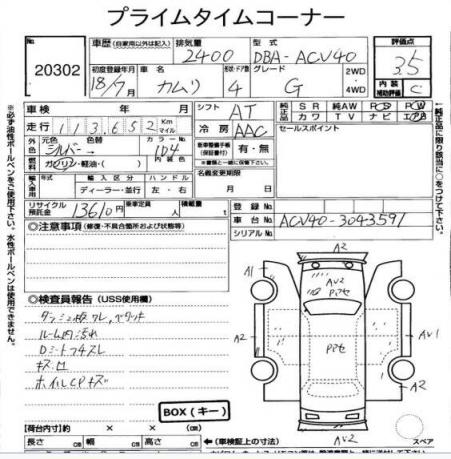 プライムタイムコーナー
20302
車歴 (自家用以外は記入) 排気量 2400 型式 DBA-ACV40
評価点 3.5
初度登録年月 18/7月 車名 カムリ 形状・ドア数 4 グレード G 2WD 4WD
内装補助評価 C
車検 年 月
シフト AT
純正品 SR 純AW PS PW
カワ TV ナビ エアB
走行 113,652 Km マイル
冷房 AAC
セールスポイント
外色 元色 シルバー→ 色替 カラーNo 1D4
燃料 ガソリン・軽油・( ) 内装色
有・無
輸入車用 年式 輸入区分 ディーラー・並行 ハンドル 左・右
名義変更期限 月 日
リサイクル預託金 13610円 乗車定員 人 積載量 t
登録No
車台No ACV40-3043591
シリアルNo
◎注意事項 (修復・不具合箇所および状態等)
◎検査員報告 (USS使用欄)
ダッシュ板ワレ、ベタツキ
ルーム内汚れ
Dシートフチスレ
キズ凹
ホイルCPキズ
BOX(キー)
【荷台内寸】 × × (cm)
長さ cm 幅 cm 高さ cm
(車検証上の寸法)
※必ず油性ボールペンをご使用下さい。水性ボールペンは使用できません。
↑純正品に限り該当に○をつけて下さい。
A2
A1
AV2
Pアセ
A2
Pアセ
AV1
A2
A2
AV2
スペア